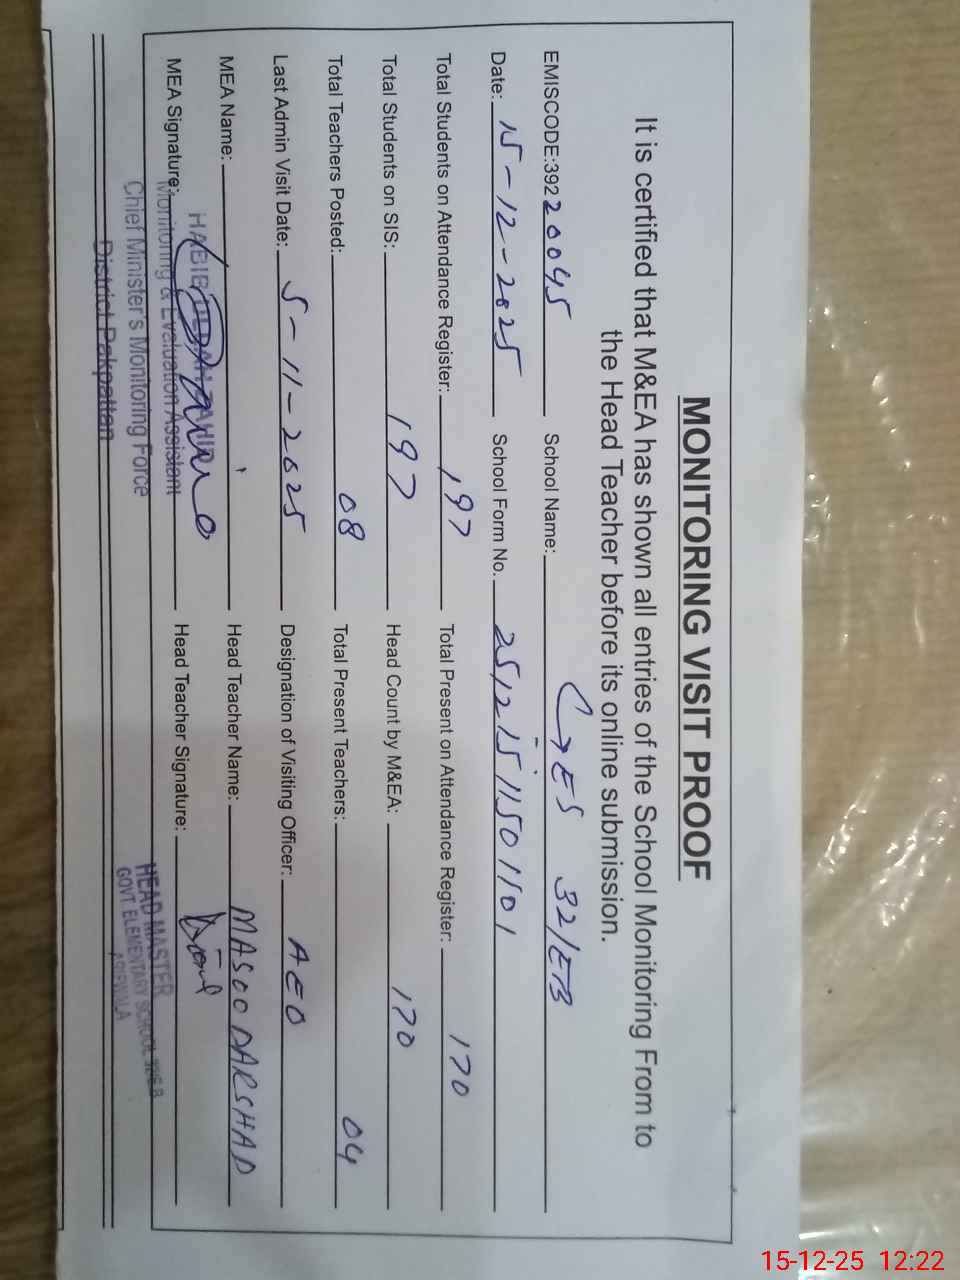 MONITORING VISIT PROOF
It is certified that M&EA has shown all entries of the School Monitoring From to
the Head Teacher before its online submission.
EMISCODE:39220045 School Name: GES 32/EB
Date: 15-12-2025 School Form No. 25121511501101
Total Students on Attendance Register: 197 Total Present on Attendance Register: 170
Total Students on SIS: 197 Head Count by M&EA: 170
Total Teachers Posted: 08 Total Present Teachers: 04
Last Admin Visit Date: 5-11-2025 Designation of Visiting Officer: AEO
MEA Name: Head Teacher Name: MASOOD ARSHAD
MEA Signature: Head Teacher Signature:
Monitoring & Evaluation Assistant
Chief Minister's Monitoring Force
District Pakpattan
HEAD MASTER
GOVT. ELEMENTARY SCHOOL 32/E.B
ARIFWALA
15-12-25 12:22